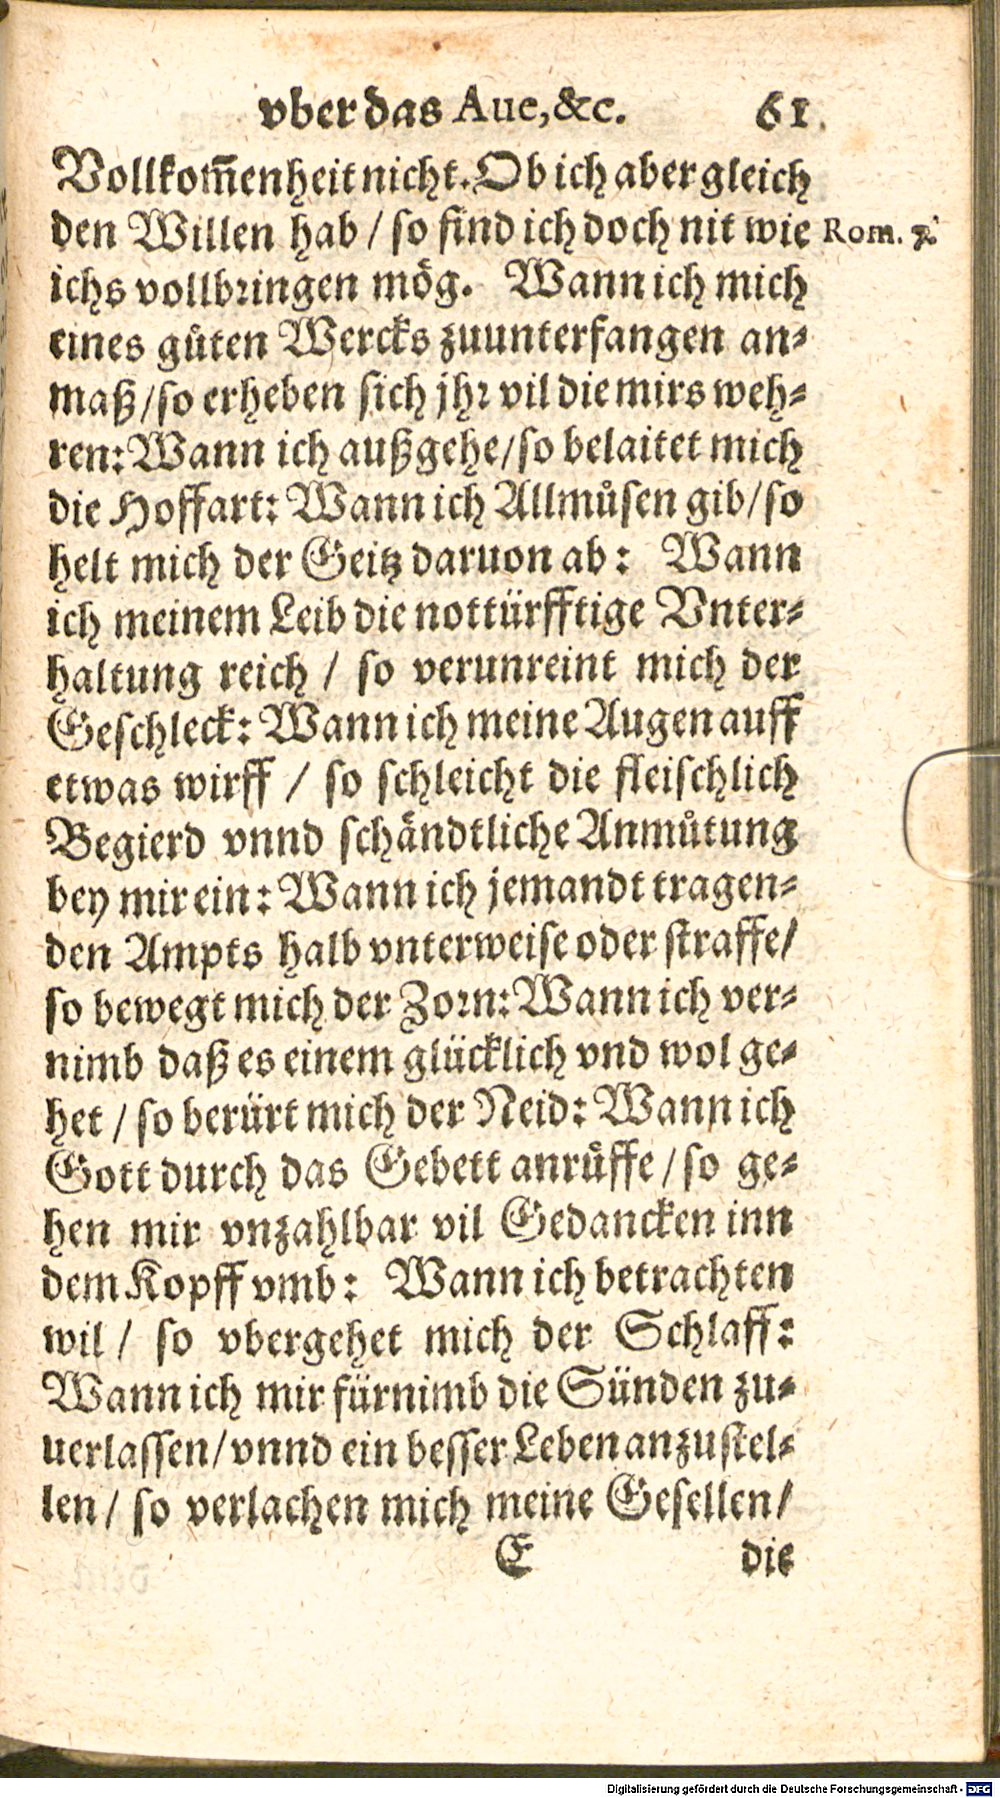 vber das Aue, &c. 61
Vollkom̃enheit nicht. Ob ich aber gleich
den Willen hab / so find ich doch nit wie Rom.
ichs vollbringen mög. Wann ich mich
eines gůten Wercks zuunterfangen an-
maß / so erheben sich jhr vil die mirs weh-
ren: Wann ich außgehe / so belaitet mich
die Hoffart: Wann ich Allmůsen gib / so
helt mich der Geitz daruon ab: Wann
ich meinem Leib die nottürfftige Vnter-
haltung reich / so verunreint mich der
Geschleck: Wann ich meine Augen auff
etwas wirff / so schleicht die fleischlich
Begierd vnnd schändtliche Anmůtung
bey mir ein: Wann ich jemandt tragen-
den Ampts halb vnterweise oder straffe /
so bewegt mich der Zorn: Wann ich ver-
nimb daß es einem glücklich vnd wol ge-
het / so berürt mich der Neid: Wann ich
Gott durch das Gebett anrůffe / so ge-
hen mir vnzahlbar vil Gedancken inn
dem Kopff vmb: Wann ich betrachten
wil / so vbergehet mich der Schlaff:
Wann ich mir fürnimb die Sünden zu-
uerlassen / vnnd ein besser Leben anzustel-
len / so verlachen mich meine Gesellen /
E die
Digitalisierung gefördert durch die Deutsche Forschungsgemeinschaft - DFG